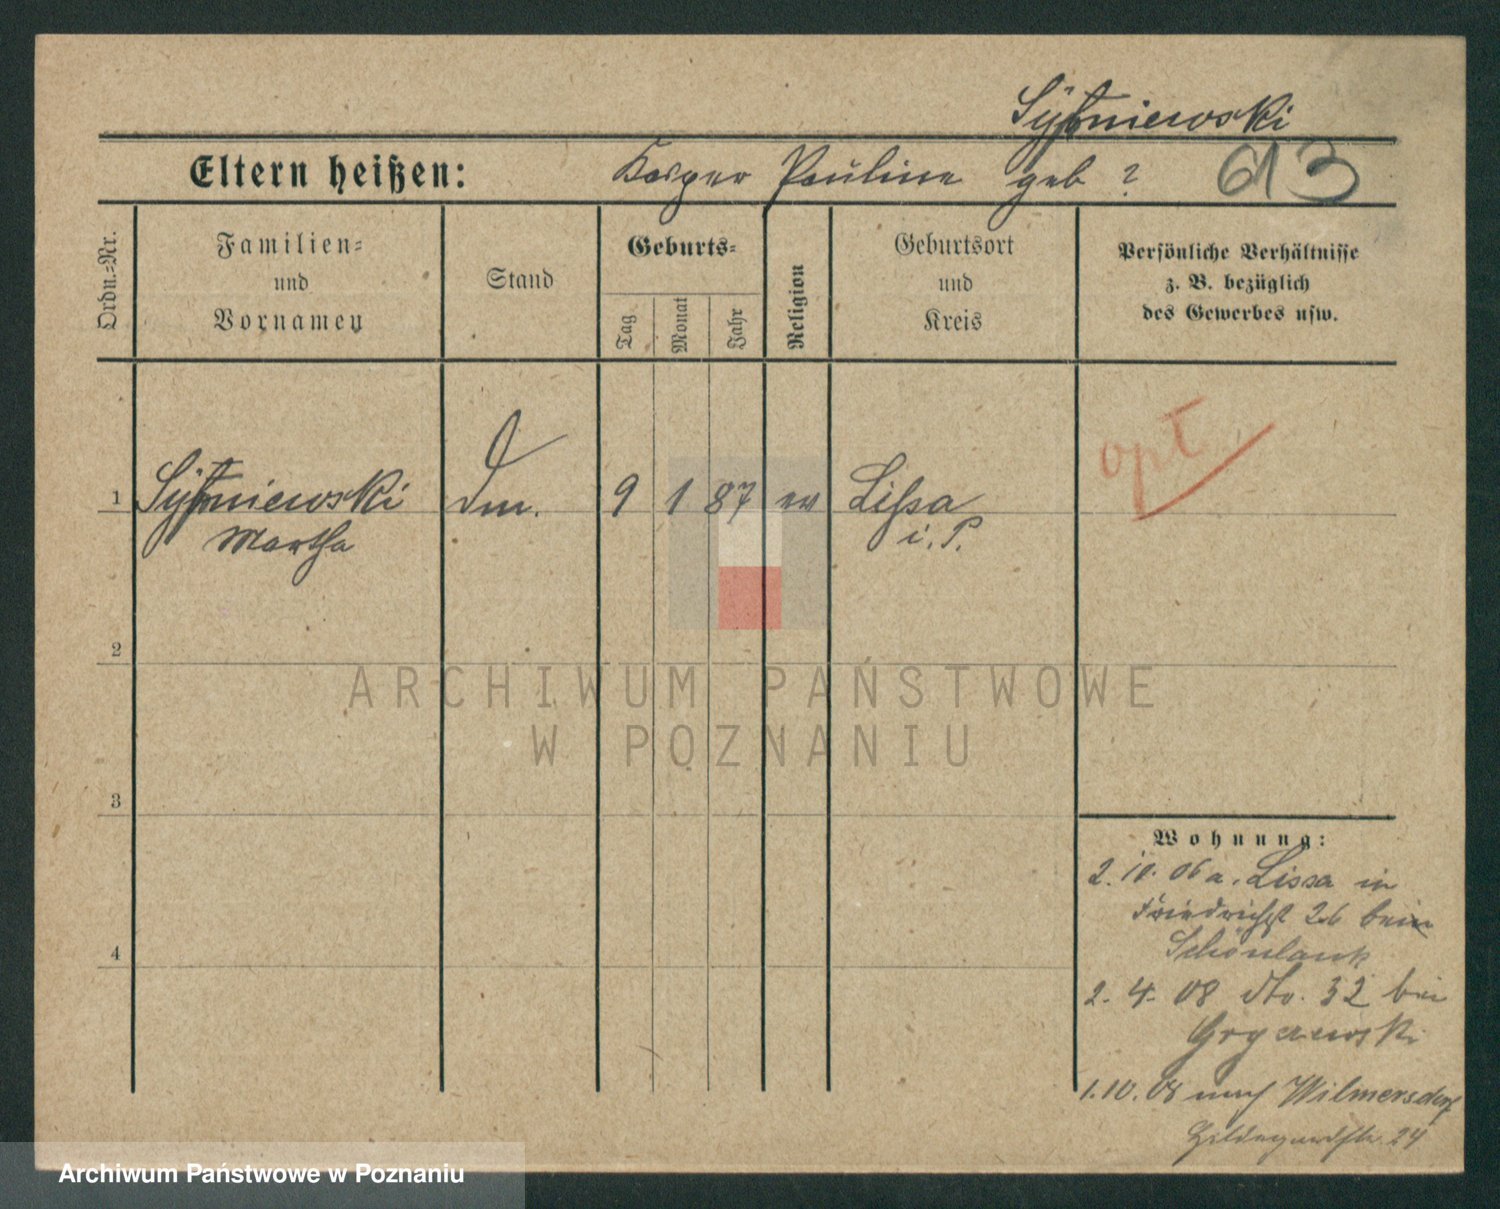 Sytniewski
Eltern heißen: Kasper Pauline geb ? 613
Ordn.-Nr.
Familien-
und
Vornamen
Stand
Geburts-
Tag
Monat
Jahr
Religion
Geburtsort
und
Kreis
Persönliche Verhältnisse
z. B. bezüglich
des Gewerbes usw.
1 Sytniewski dm. 9 1 87 ev Lissa
Martha i. P.
opt
2
3
4
Wohnung:
2. 10. 06 a. Lissa in
Friedrichst 26 bei
Schönlank
2. 4. 08 dto. 32 bei
1. 10. 08 nach Wilmersdorf
Hildegardstr. 24
ARCHIWUM PAŃSTWOWE
W POZNANIU
Archiwum Państwowe w Poznaniu